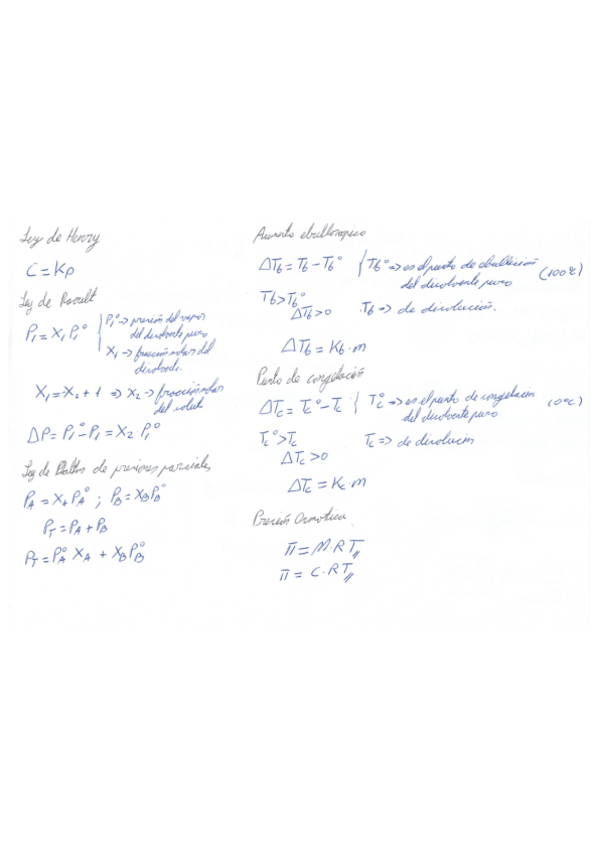 Ley de Henry
C = Kp
Ley de Raoult
P₁ = X₁ P₁° { P₁° => presión del vapor
del disolvente puro
X₁ -> fracción molar del
disolvente.
X₁ = X₂ + 1 => X₂ -> fracción molar
del soluto
ΔP = P₁° - P₁ = X₂ · P₁°
Ley de Dalton de presiones parciales
P_A = X_A P_A° ; P_B = X_B P_B°
P_T = P_A + P_B
P_T = P_A° X_A + X_B P_B°
Aumento ebulloscopico
ΔT_b = T_b - T_b° { T_b° => es el punto de ebullición (100°C)
del disolvente puro
T_b > T_b°
ΔT_b > 0 T_b => de disolución.
ΔT_b = K_b · m
Punto de congelación
ΔT_c = T_c° - T_c { T_c° => es el punto de congelacion (0°C)
del disolvente puro
T_c° > T_c T_c => de disolución
ΔT_c > 0
ΔT_c = K_c · m
Presión Osmotica
π = M · R T
π = C · R T